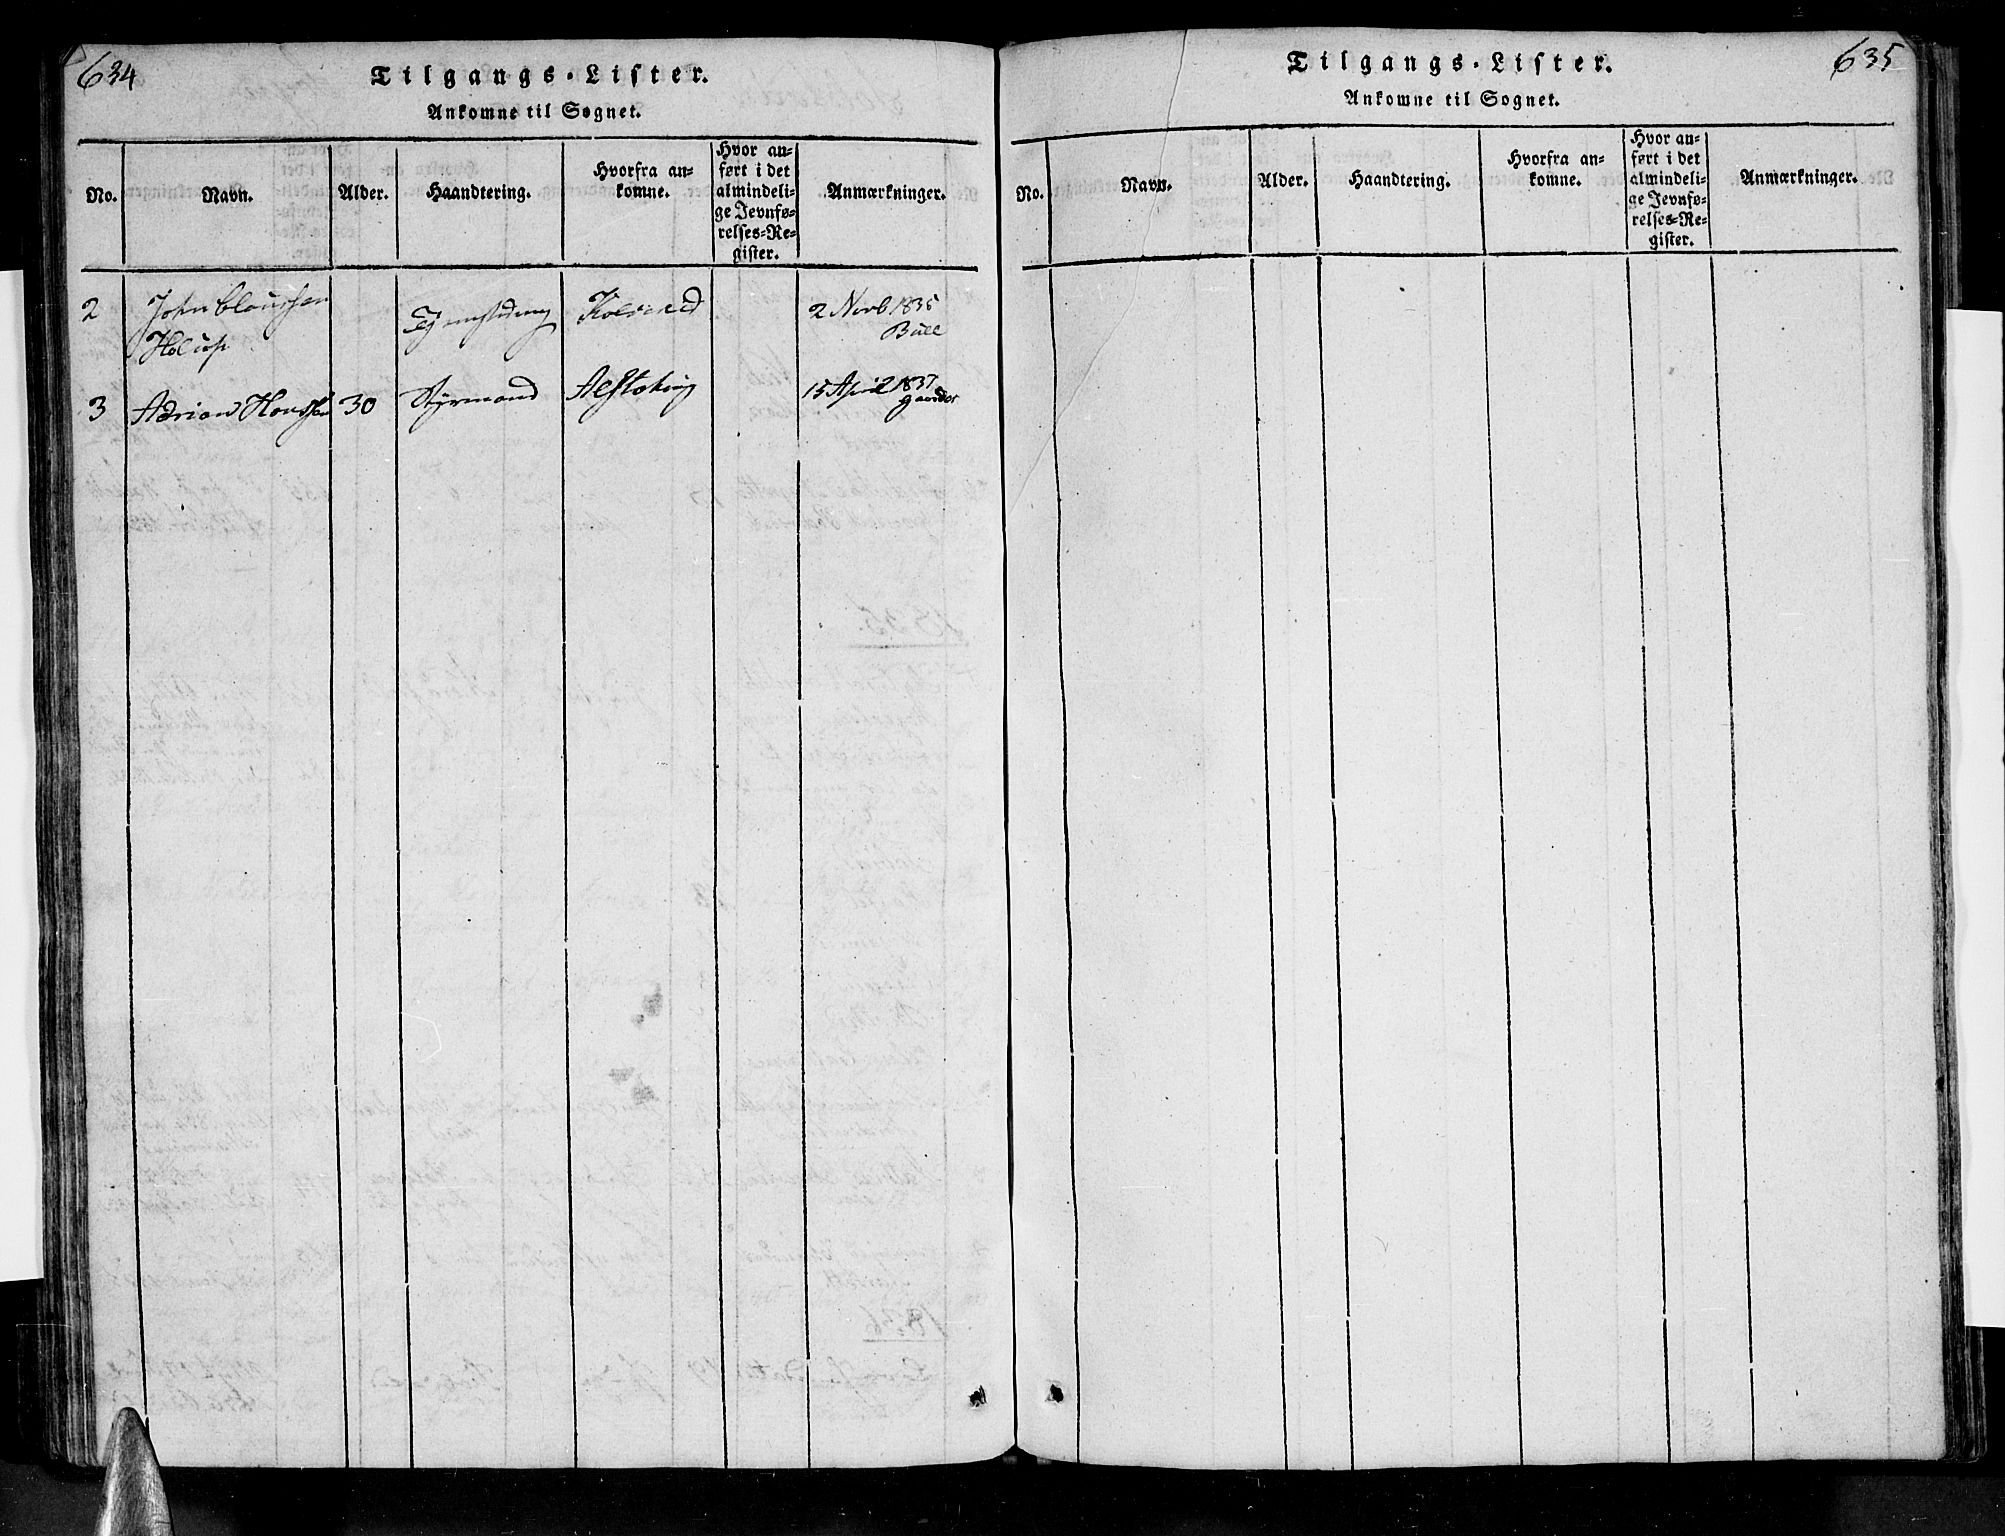 634
Tilgangs-Lister.
Ankomne til Sognet.
No.
Navn.
Alder.
Haandtering.
Hvorfra an-
komne.
Hvor an-
ført i det
almindeli-
ge Jevnfø-
relses-Re-
gister.
Anmærkninger.
2
John Claussen
Kolsrud
2 Novb 1835
3
Adrian
30
Styrmand
15 April 1837
635
Tilgangs-Lister.
Ankomne til Sognet.
No.
Navn.
Alder.
Haandtering.
Hvorfra an-
komne.
Hvor an-
ført i det
almindeli-
ge Jevnfø-
relses-Re-
gister.
Anmærkninger.